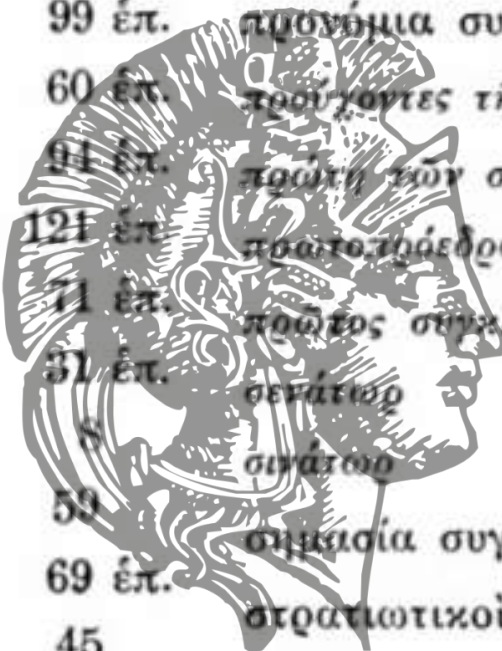 99 ἑπ. προνόμια συ
60 ἑπ. προὔχοντες τῆ
94 ἑπ. πρώτη τῶν σ
121 ἑπ. πρωτοπρόεδρο
71 ἑπ. πρῶτος συγκ
31 ἑπ. σενάτωρ
8 σινάτωρ
59 σημασία συγ
69 ἑπ. στρατιωτικοὶ
45